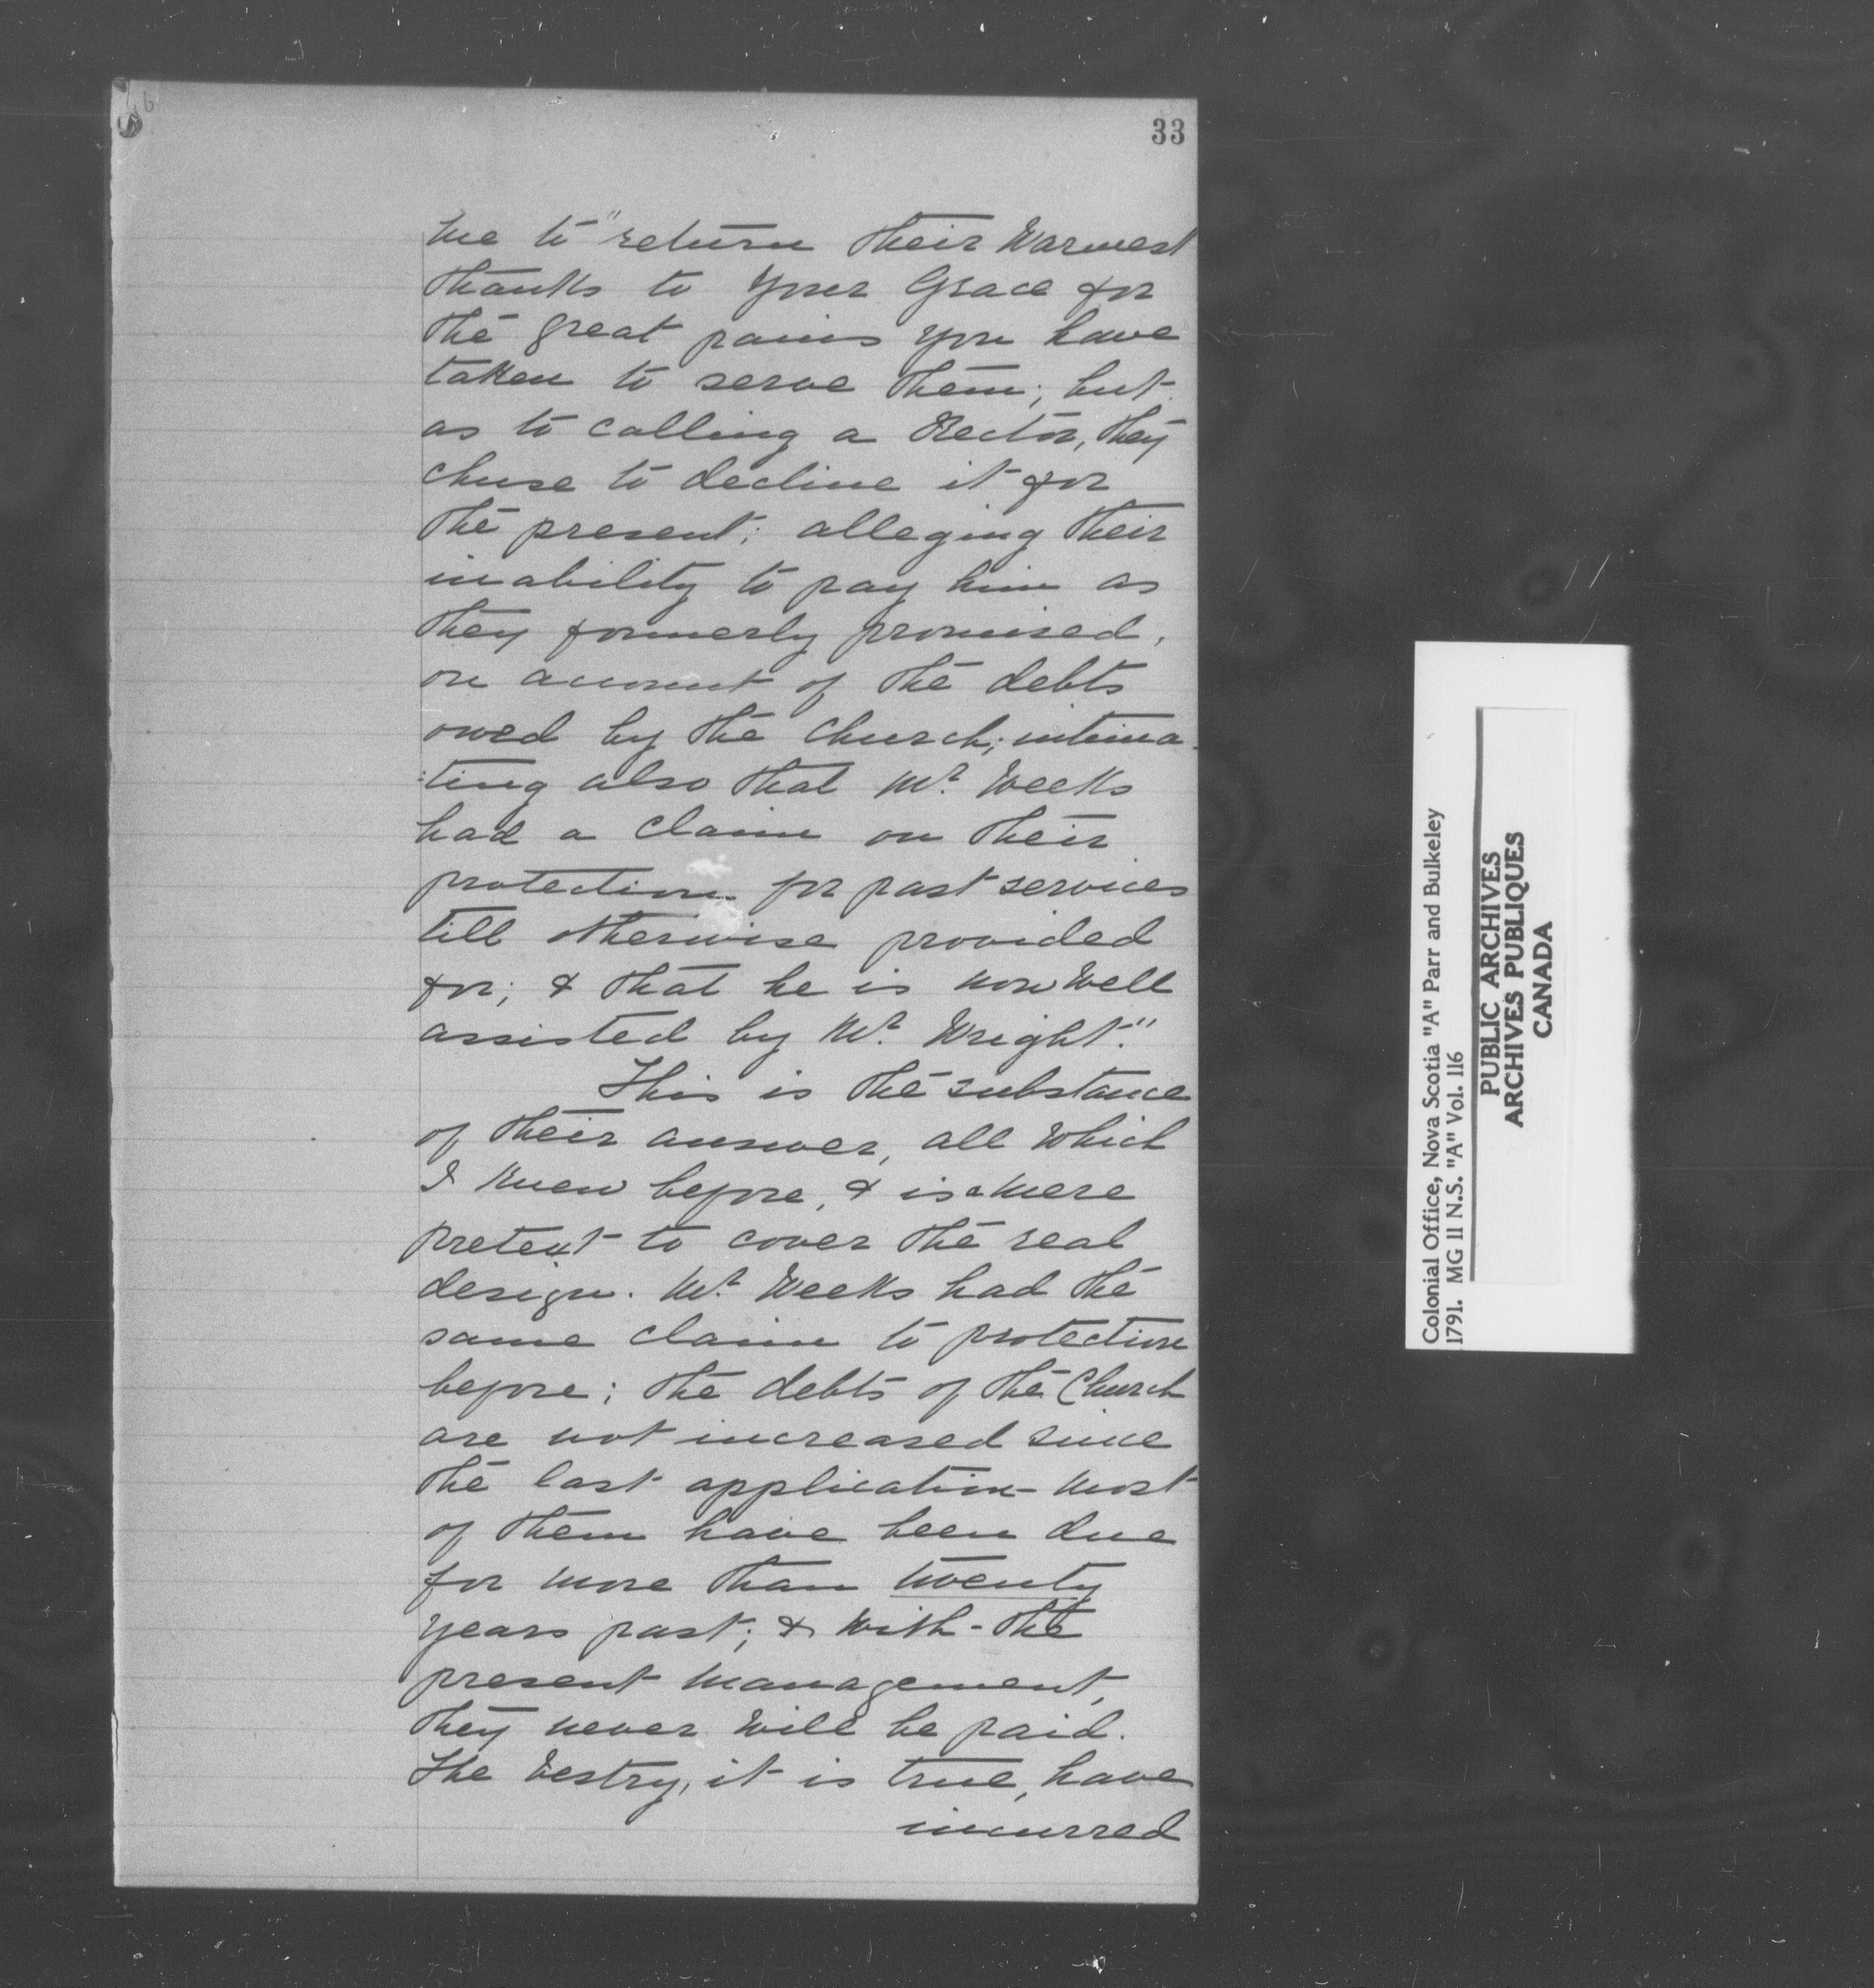 33
me to "return their warmest
thanks to your Grace for
the great pains you have
taken to serve them; but
as to calling a Rector, they
chuse to decline it for
the present; alleging their
inability to pay him as
they formerly promised,
on account of the debts
owed by the Church; intima-
:ting also that Mr. Weeks
had a claim on their
protection for past services
till otherwise provided
for; & that he is now well
assisted by Mr. Wright."
This is the substance
of their answer, all which
I knew before, & is a mere
pretext to cover the real
design. Mr. Weeks had the
same claim to protection
before; the debts of the Church
are not increased since
the last application - most
of them have been due
for more than twenty
years past; & with - the
present management,
they never will be paid.
The Vestry, it is true, have
incurred
Colonial Office, Nova Scotia "A" Parr and Bulkeley
1791. MG 11 N.S. "A" Vol. 116
PUBLIC ARCHIVES
ARCHIVES PUBLIQUES
CANADA